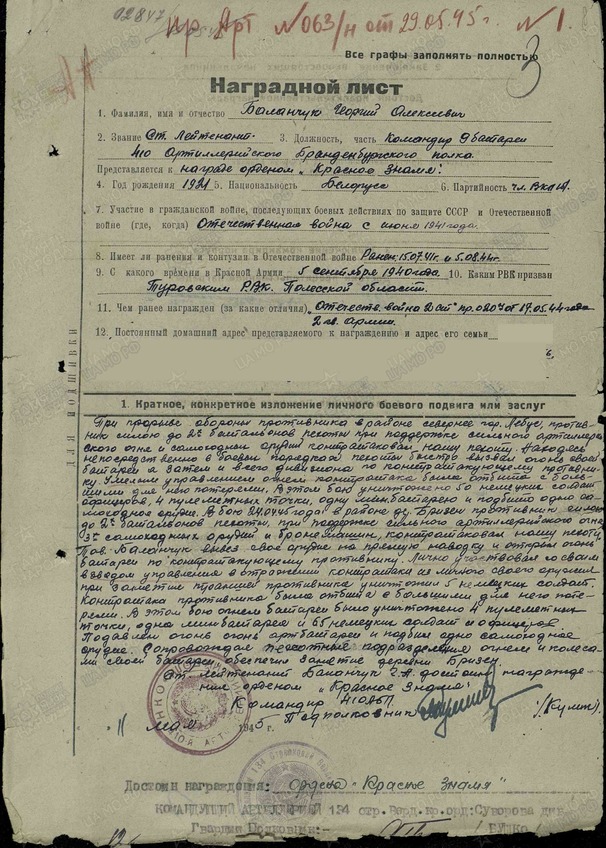 02847
пр. Арт №063/н от 29.05.45г. №1.
Все графы заполнять полностью
3
Наградной лист
1. Фамилия, имя и отчество Баланчук Георгий Алексеевич
2. Звание Ст. Лейтенант. 3. Должность, часть Командир батареи
410 Артиллерийского Бранденбургского полка.
Представляется к награде орденом „Красное Знамя".
4. Год рождения 1921 5. Национальность Белорусс 6. Партийность чл. ВКП(б).
7. Участие в гражданской войне, последующих боевых действиях по защите СССР и Отечественной
войне (где, когда) Отечественная война с июня 1941 года.
8. Имеет ли ранения и контузии в Отечественной войне Ранен: 15.07.41г. и 5.08.44г.
9. С какого времени в Красной Армии 5 сентября 1940 года. 10. Каким РВК призван
Туровским РВК. Полесской области.
11. Чем ранее награжден (за какие отличия) „Отечеств. война 2 ст" пр. 020/н от 17.05.44 года
2 гв. Армии.
12. Постоянный домашний адрес представляемого к награждению и адрес его семьи
ДЛЯ ПОДШИВКИ
1. Краткое, конкретное изложение личного боевого подвига или заслуг
При прорыве обороны противника в районе севернее гор. Лебус, против-
ник силою до 2х батальонов пехоты при поддержке сильного артиллерий-
ского огня и самоходных орудий контратаковал нашу пехоту. Находясь
непосредственно в боевых порядках пехоты быстро вызвал огонь своей
батареи а затем и всего дивизиона по контратакующему противни-
ку. Умелым управлением огнем контратака была отбита с боль-
шими для него потерями. В этом бою уничтожено 50 немецких солдат
и офицеров, 4 пулеметных точки, одну минбатарею и подбито одно са-
моходное орудие. В бою 24.04.45 года в районе д. Бризен противник силою
до 2х батальонов пехоты, при поддержке сильного артиллерийского огня
3х самоходных орудий и бронемашин, контратаковал нашу пехоту.
Тов. Баланчук вывез свое орудие на прямую наводку и открыл огонь
батареи по контратакующему противнику. Лично участвовал со своим
взводом управления в отражении контратаки из личного своего оружия
при занятие траншеи противника уничтожил 5 немецких солдат.
Контратака противника была отбита с большими для него поте-
рями. В этом бою огнем батареи было уничтожено 4 пулеметных
точки, одна минбатарея и 65 немецких солдат и офицеров
Подавлен огонь артбатареи и подбил одно самоходное
орудие. Сопровождая пехотные подразделения огнем и колеса-
ми своей батареи обеспечил занятие деревни Бризен.
Ст. лейтенант Баланчук Г.А. достоин награжде-
ния орденом „Красное Знамя".
Командир 410 АБП
Подполковник /Кумпи/.
11 мая 1945г.
Достоин награждения: ордена „Красное Знамя"
КОМАНДУЮЩИЙ АРТИЛЛЕРИЕЙ 134 стр. Верд. кр. орд: Суворова див.
Гвардии Полковник:- /БУДКО/